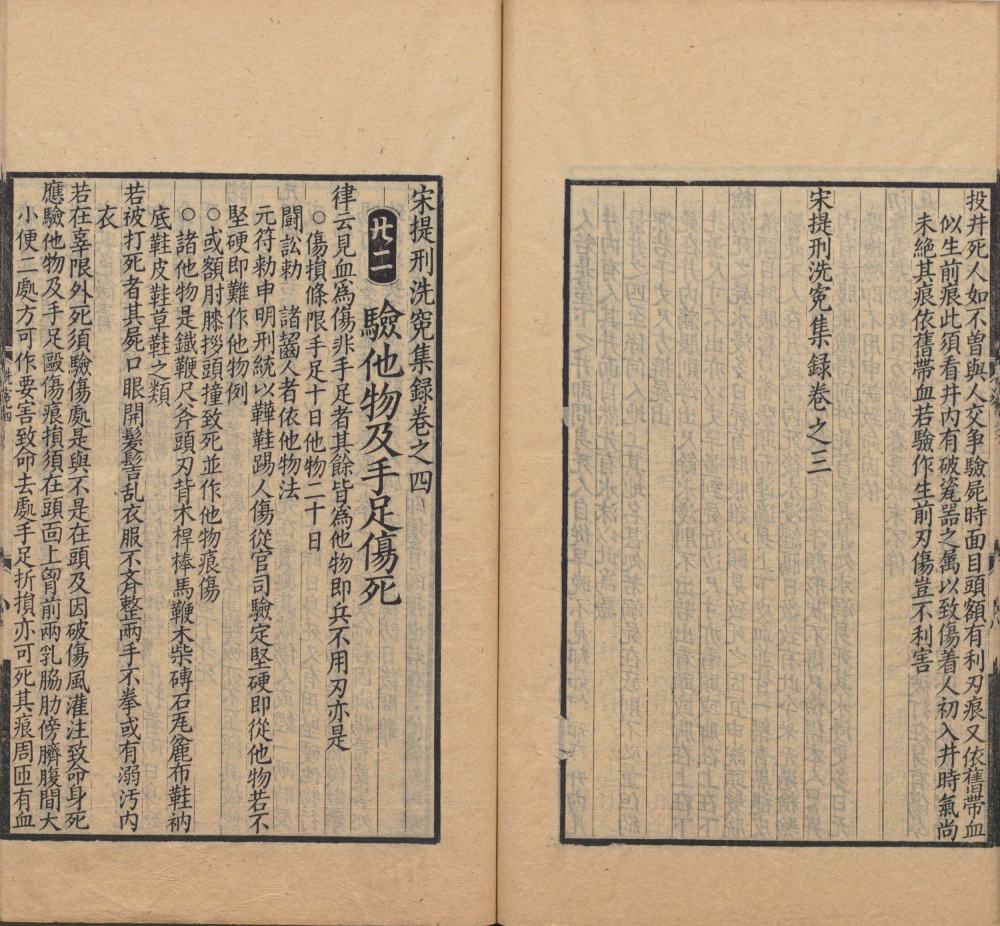 投井死人如不曽與人交争驗屍時面目頭額有利刃痕又依舊帶血
似生前痕此須看井内有破瓷器之属以致傷着人初入井時氣尚
未絶其痕依舊帶血若驗作生前刃傷豈不利害
宋提刑洗寃集録卷之三
宋提刑洗寃集録卷之四
廿二 驗他物及手足傷死
律云見血爲傷非手足者其餘皆爲他物即兵不用刃亦是
○傷損條限手足十日他物二十日
鬪訟勑 諸齧人者依他物法
元符勑申明刑統以鞾鞋踢人傷從官司驗定堅硬即從他物若不
堅硬即難作他物例
○或額肘膝拶頭撞致死並作他物痕傷
○諸他物是鐵鞭尺斧頭刃背木桿棒馬鞭木柴磚石瓦麄布鞋衲
底鞋皮鞋草鞋之類
若被打死者其屍口眼開髮髻乱衣服不齊整兩手不拳或有溺汚内
衣
若在辜限外死須驗傷處是與不是在頭及因破傷風灌注致命身死
應驗他物及手足毆傷痕損須在頭面上胷前兩乳脇肋傍臍腹間大
小便二處方可作要害致命去處手足折損亦可死其痕周匝有血